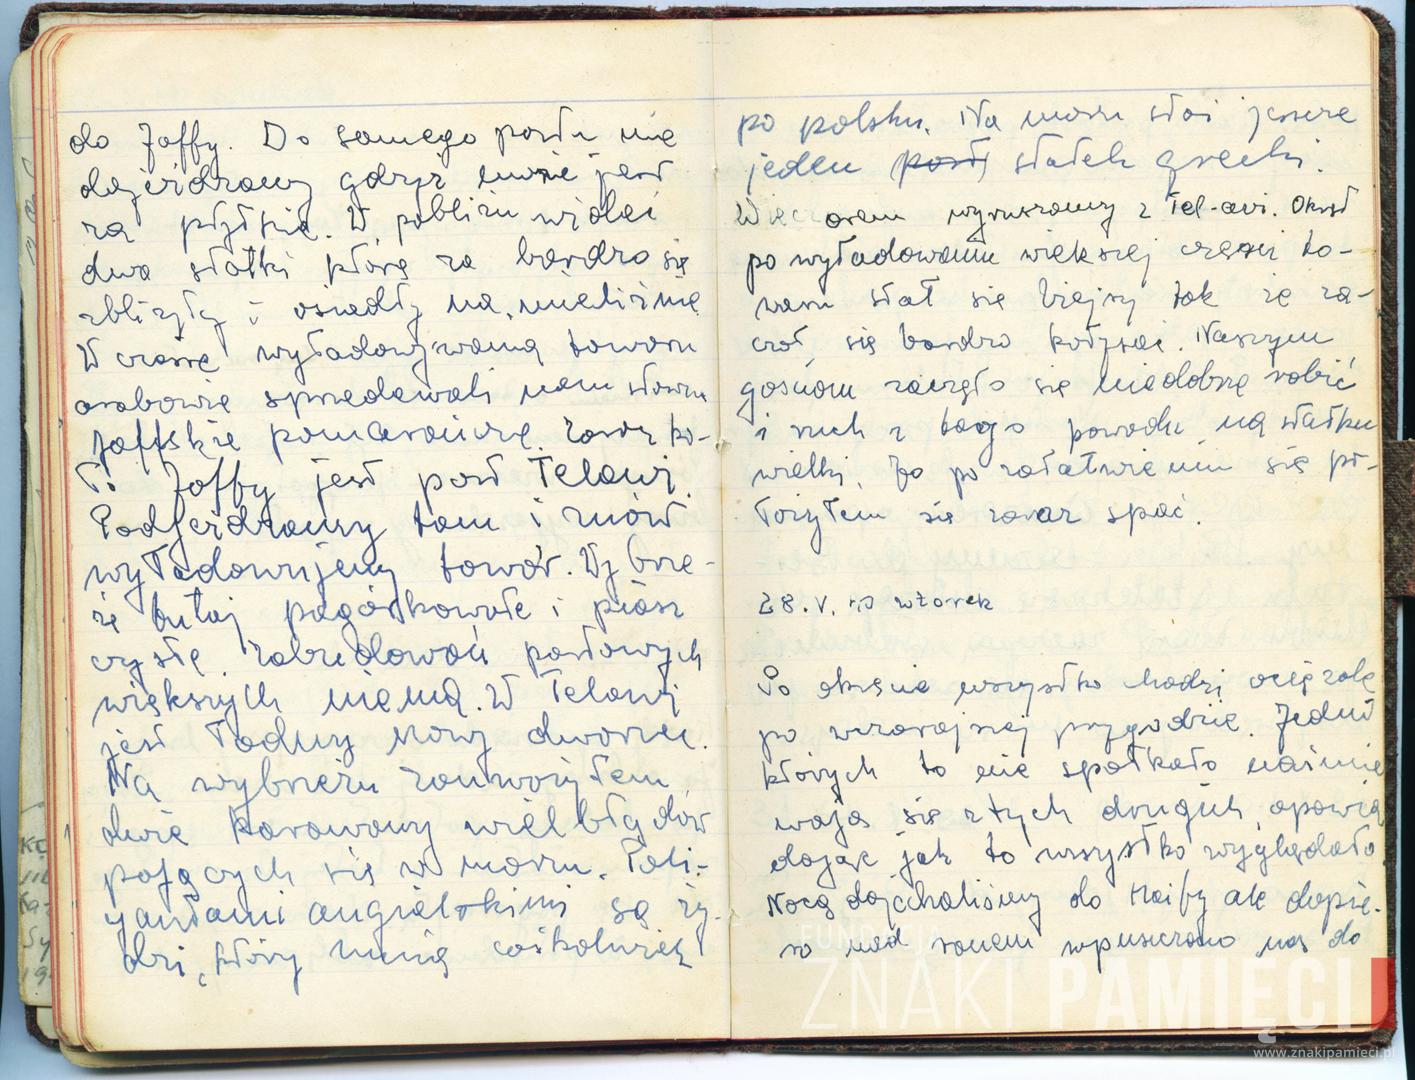 do Jaffy. Do samego portu nie
dojeżdżamy gdyż morze jest
za płytkie. W pobliżu widać
dwa statki które za bardzo się
zbliżyły i osiadły na mieliźnie
W czasie wyładowywania towaru
arabowie sprzedawali nam słynne
jaffskie pomarańcze zaraz ko-
Jaffy jest port Telawi.
Podjeżdżamy tam i znów
wyładowujemy towar. Wybrze-
że tutaj pagórkowate i piasz
czyste zabudowań portowych
większych niema. W Telawi
jest ładny nowy dworzec.
Na wybrzeżu zauważyłem
dwie karawany wielbłądów
pojących się w morzu. Poli-
cjantami angielskimi są ży-
dzi, którzy umią cośkolwiek
po polsku. Na morzu stoi jeszcze
jeden port statek grecki.
Wieczorem wyruszamy z Tel-avi. Okręt
po wyładowaniu większej części to-
waru stał się lżejszy tak że za-
czął się bardzo kołysać. Naszym
gościom zaczęło się niedobrze robić
i ruch z tego powodu na statku
wielki. Ja po załatwieniu się po-
łożyłem się zaraz spać.
28.V. wtorek
Po okręcie wszystko chodzi ociężale
po wczorajszej przygodzie. Jedni
których to nie spotkało naśmie
wają się z tych drugich, opowia
dając jak to wszystko wyglądało
Nocą dojechaliśmy do Haify ale dopie-
ro nad ranem wpuszczono nas do
FUNDACJA
ZNAKI PAMIĘCI
www.znakipamieci.pl